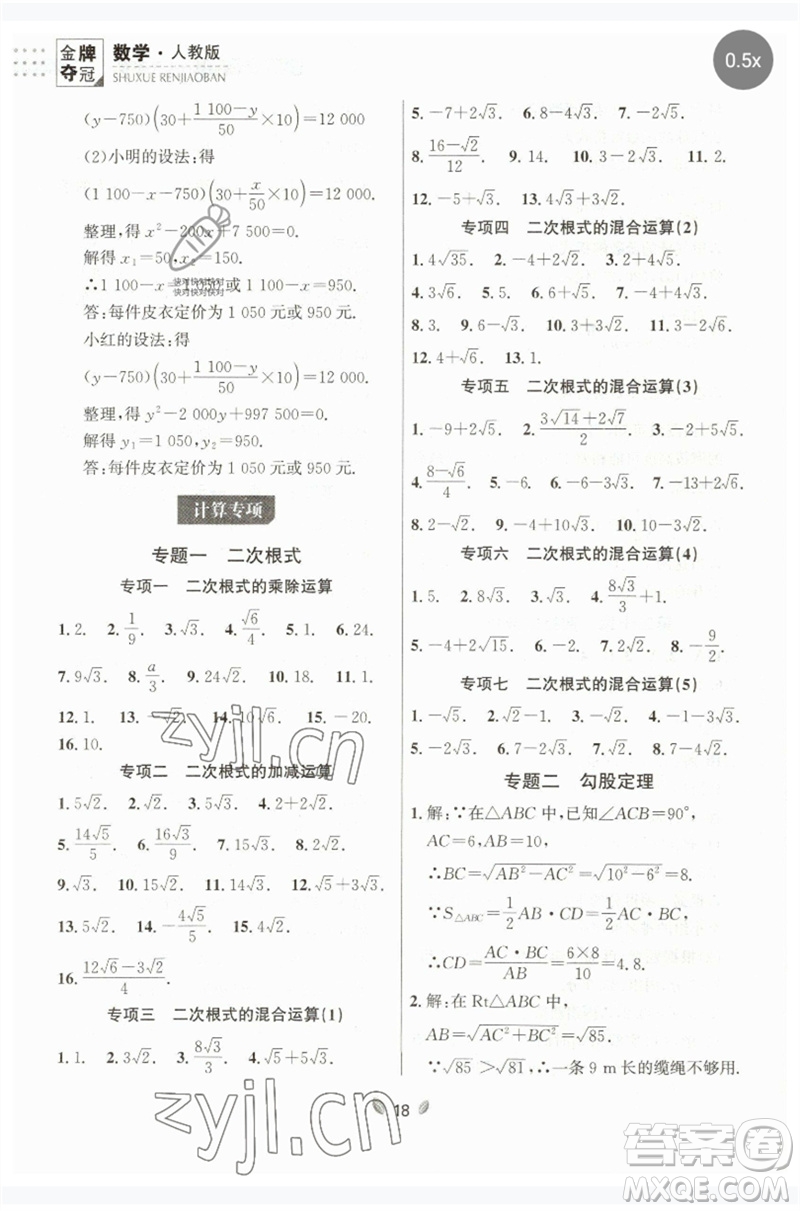 金牌夺冠 数学·人教版
SHUXUE RENJIAOBAN
0.5x
(y-750)(30+\frac{1 100-y}{50}×10)=12 000
(2)小明的设法:得
(1 100-x-750)(30+\frac{x}{50}×10)=12 000.
整理,得 x²-200x+7 500=0.
解得 x₁=50,x₂=150.
∴1 100-x=1 050或 1 100-x=950.
答:每件皮衣定价为 1 050 元或 950 元.
小红的设法:得
(y-750)(30+\frac{1 100-y}{50}×10)=12 000
整理,得 y²-2 000y+997 500=0.
解得 y₁=1 050,y₂=950.
答:每件皮衣定价为 1 050 元或 950 元.
计算专项
专题一 二次根式
专项一 二次根式的乘除运算
1. 2. 2. \frac{1}{9}. 3. √3. 4. \frac{√6}{4}. 5. 1. 6. 24.
7. 9√3. 8. \frac{a}{3}. 9. 2√3. 10. 18. 11. 1.
12. 1. 13. -√2. 14. 10√6. 15. -20.
16. 10.
专项二 二次根式的加减运算
1. 5√2. 2. √3. 3. 5√3. 4. 15√2.
5. \frac{14√5}{5}. 6. \frac{16√3}{9}. 7. 15√3. 8. 2√2.
9. √3. 10. 15√2. 11. 9√3. 12. √3.
13. 5√2. 14. -\frac{4√5}{5}. 15. 4√2.
16. \frac{12√6-3√2}{4}.
专项三 二次根式的混合运算(1)
1. 1. 2. 3√2. 3. \frac{8√3}{3}. 4. 4+√2.
5. -7+2√3. 6. 8-4√3. 7. -2√3.
8. \frac{16-√2}{12}. 9. 14. 10. 3-2√3. 11. 2.
12. -5+√3. 13. 4√3+3√2.
专项四 二次根式的混合运算(2)
1. 4√35. 2. -4+2√2. 3. -2+√3.
4. 3√6. 5. 5. 6. 2√3. 7. 4+5√2.
8. 3. 9. 6-√3. 10. -4√3. 11. 6-√3.
12. 4+√6. 13. 1.
专项五 二次根式的混合运算(3)
1. -9+2√5. 2. \frac{3√14+2√7}{2}. 3. -2+5√5.
4. \frac{8-√6}{4}. 5. -6. 6. -2√3. 7. -13+2√6.
8. 2-√2. 9. 1+√5. 10. 6√3. 11. √2.
专项六 二次根式的混合运算(4)
1. 5. 2. 8√3. 3. 10. 4. \frac{8√3}{3}+1.
5. -4+2√15. 6. -2. 7. 2√2. 8. -\frac{9}{2}.
专项七 二次根式的混合运算(5)
1. -√5. 2. √2-1. 3. -2√2. 4. -1-3√3.
5. -2√2. 6. 7-2√2. 7. 5. 8. -1-3√3.
专题二 勾股定理
1. 解:∵在△ABC 中,已知∠ACB=90°,
AC=6,AB=10,
∴BC=√(AB²-AC²)=√(10²-6²)=8.
∵S△ABC=\frac{1}{2}AB·CD=\frac{1}{2}AC·BC,
∴CD=\frac{AC·BC}{AB}=\frac{6×8}{10}=4.8.
2. 解:在 Rt△ABC 中,
AB=√(AC²+BC²)=√85.
∵√85>√81,∴一条 9 m 长的缆绳不够用.
18
快对快对快对
快对快对快对
zyjl.cn
zyjl.cn
答案卷
MXQE.COM